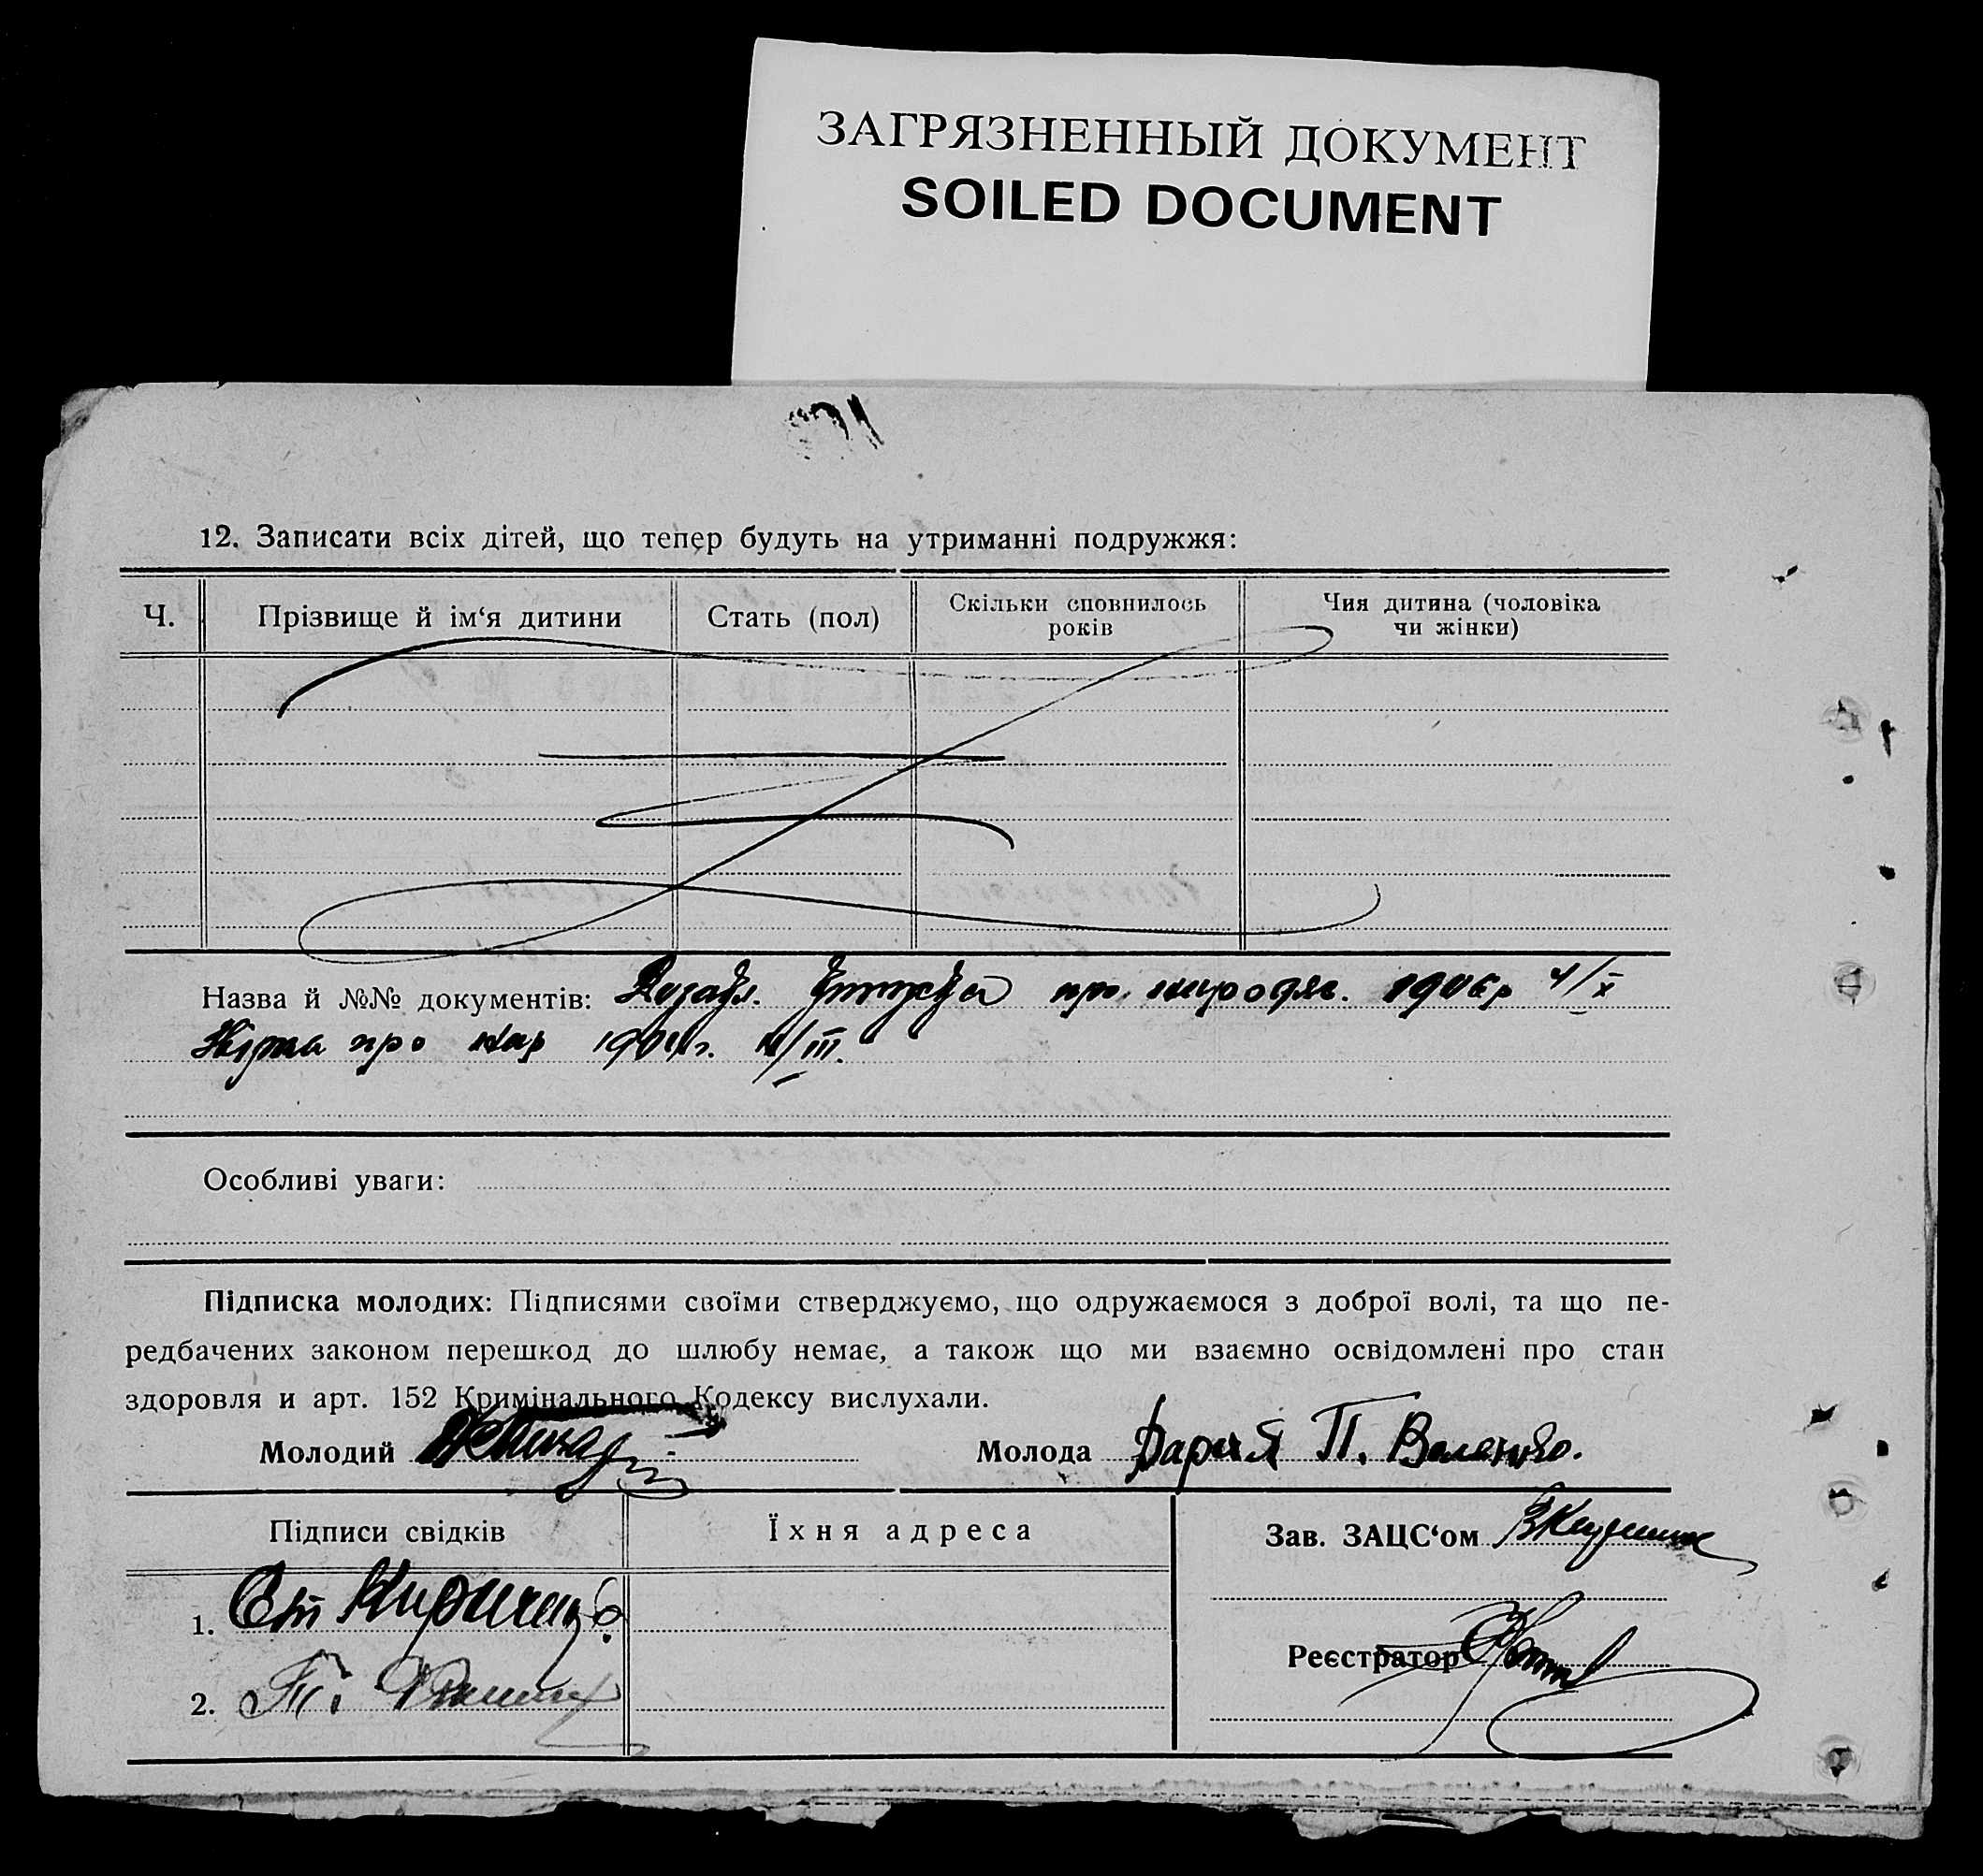 ЗАГРЯЗНЕННЫЙ ДОКУМЕНТ
SOILED DOCUMENT
12. Записати всіх дітей, що тепер будуть на утриманні подружжя:
Ч. Прізвище й ім‘я дитини Стать (пол) Скільки сповнилось років Чия дитина (чоловіка чи жінки)
Назва й №№ документів: про 1906р 4/X
про нар III.
Особливі уваги:
Підписка молодих: Підписями своїми стверджуємо, що одружаємося з доброї волі, та що пе-
редбачених законом перешкод до шлюбу немає, а також що ми взаємно освідомлені про стан
здоровля и арт. 152 Кримінального Кодексу вислухали.
Молодий Молода Дария П.
Підписи свідків Їхня адреса Зав. ЗАЦС‘ом
1. Ст
Реєстратор
2.